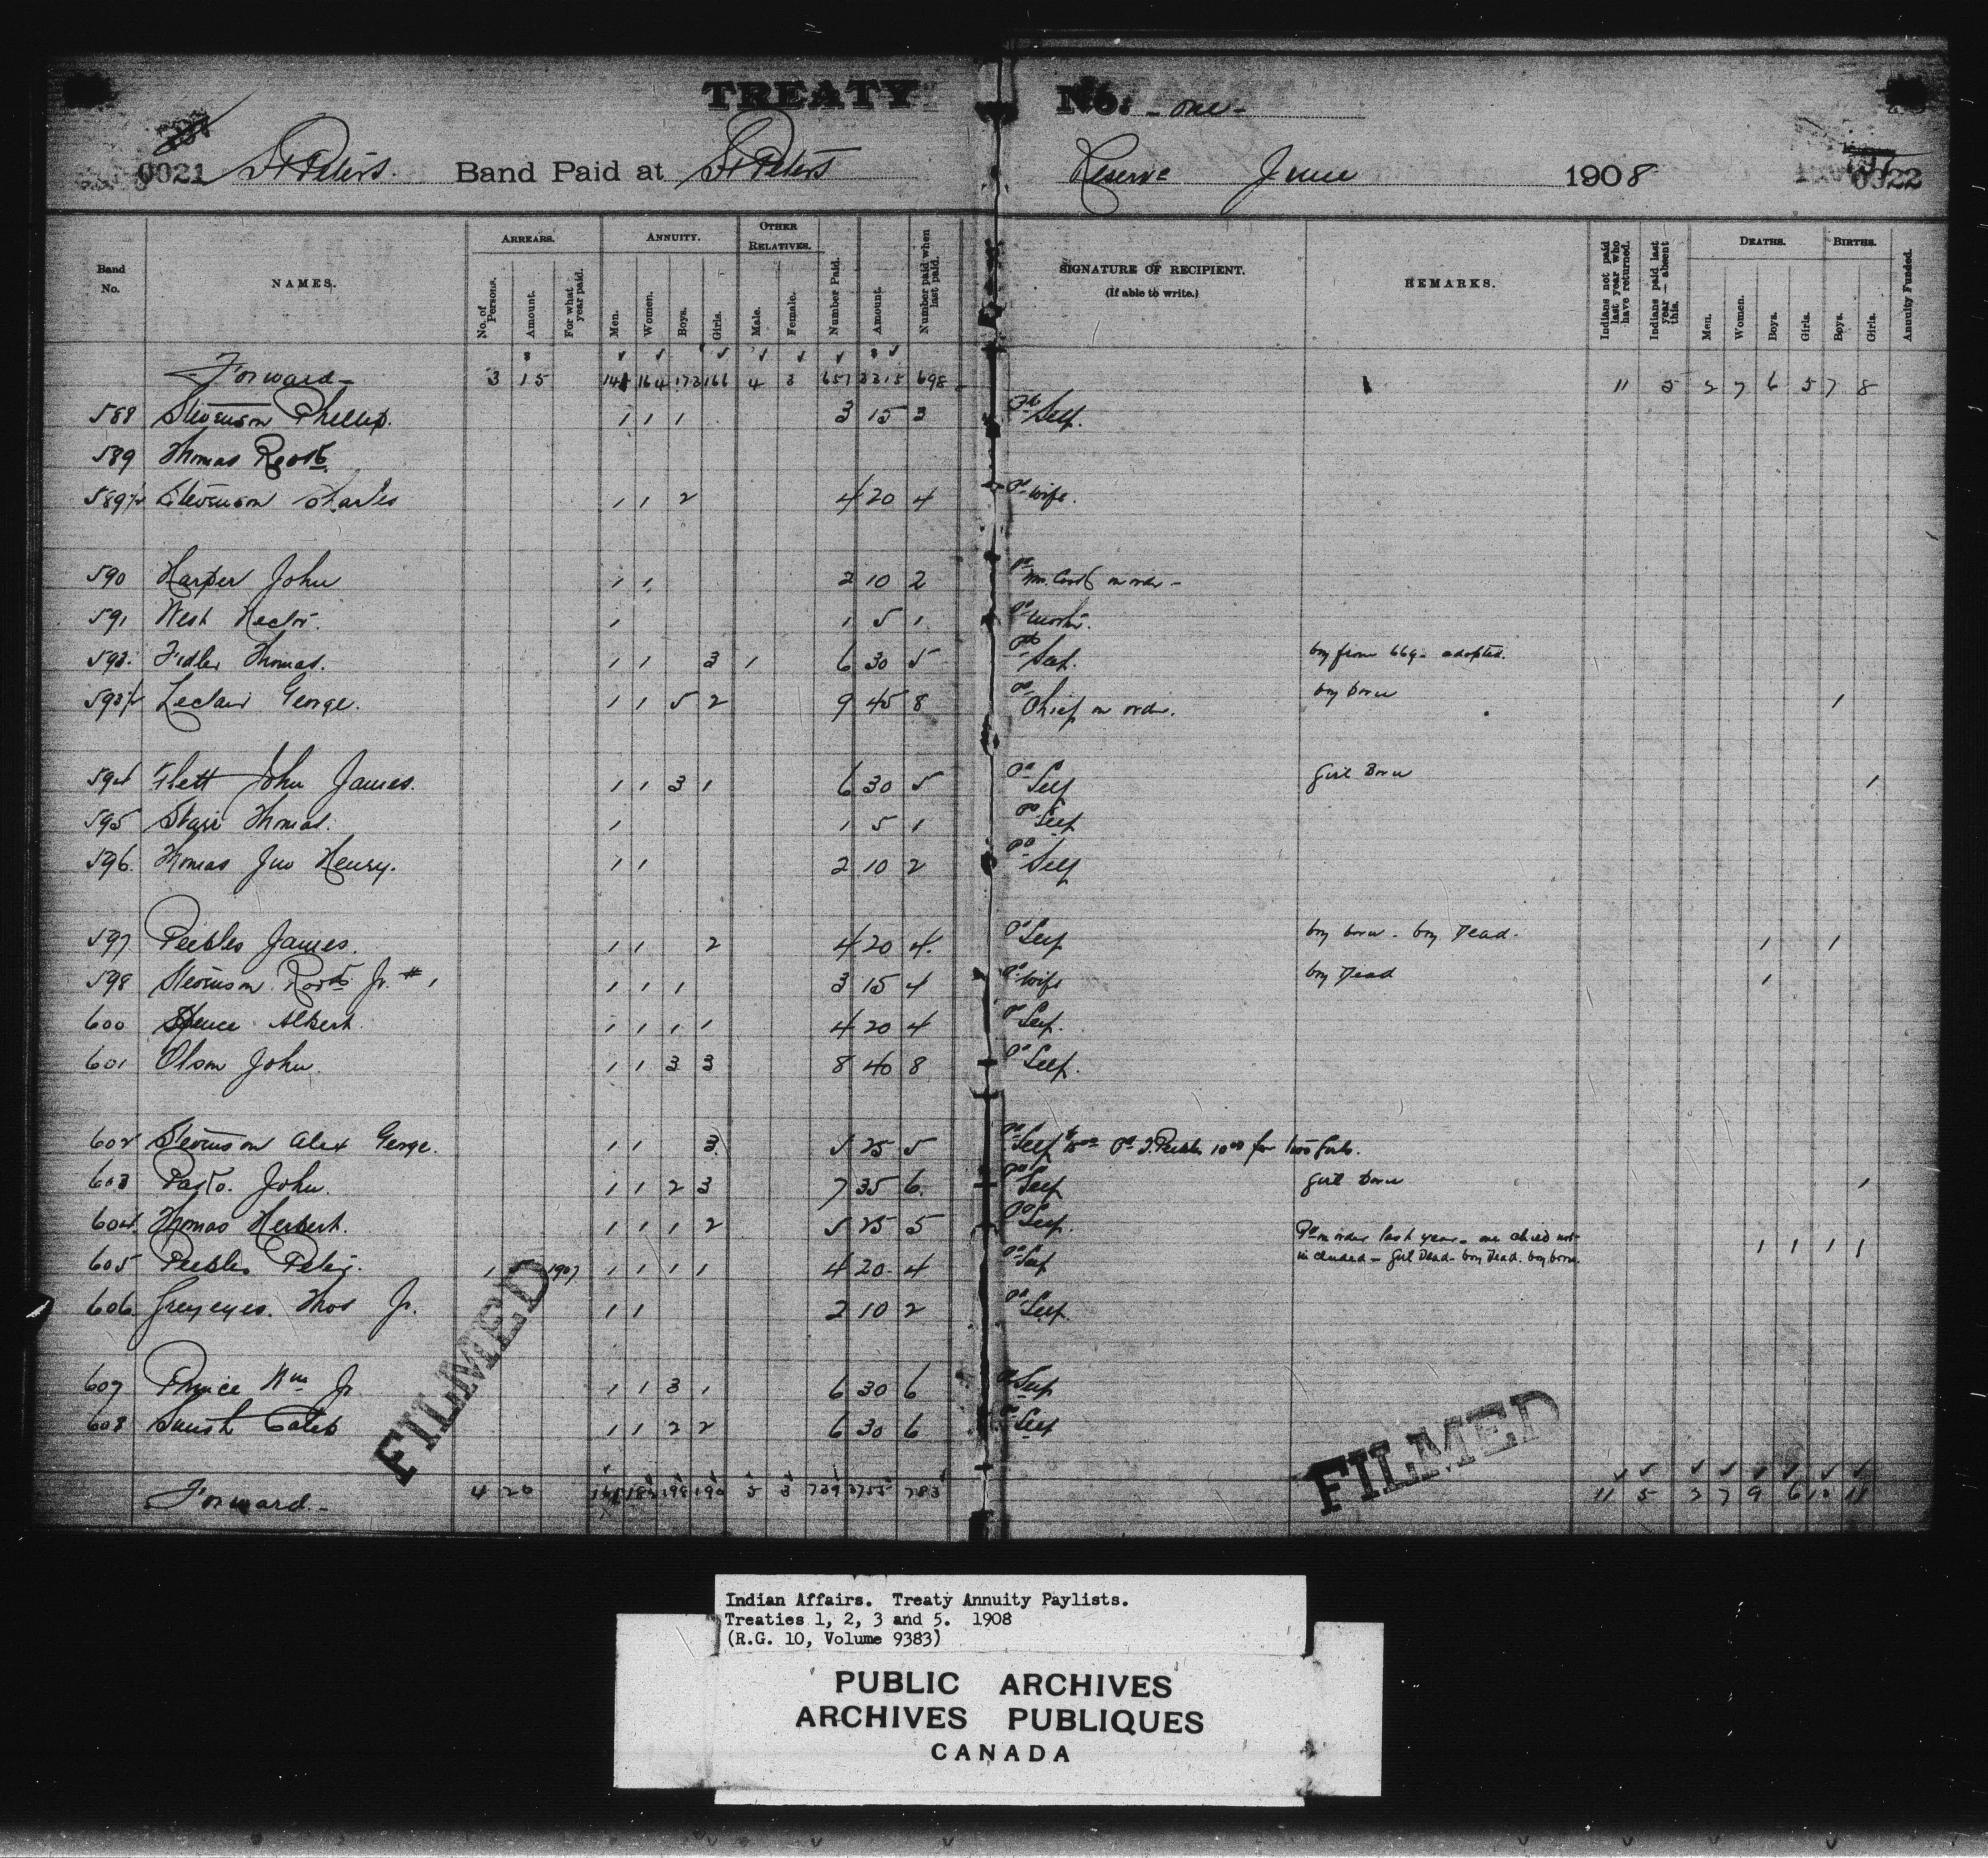 TREATY No. - one -
0021 St Peters. Band Paid at St Peters Reserve June 1908 0022
Band No. NAMES. ARREARS. No. of Persons. Amount. For what year paid. ANNUITY. Men. Women. Boys. Girls. OTHER RELATIVES. Male. Female. Number Paid. Amount. Number paid when last paid. SIGNATURE OF RECIPIENT. (If able to write.) REMARKS. Indians not paid last year who have returned. Indians paid last year — absent this. DEATHS. Men. Women. Boys. Girls. BIRTHS. Boys. Girls. Annuity Funded.
Forward - 3 15 164 172 166 4 3 657 698 11 5 2 7 6 5 7 8
588 Stevenson Phillip. 1 1 1 3 15 3 Pd Self.
589 Thomas Robt.
589½ Stevenson Charles 1 1 2 4 20 4 Pd wife.
590 Harper John 1 1 2 10 2 Pd on order -
591 West Hector. 1 1 5 1 Pd
593. Fidler Thomas. 1 1 3 1 6 30 5 Pd Self. boy from 669 - adopted.
593½ Leclair George. 1 1 5 2 9 45 8 Pd Chief on order. boy born 1
594 Flett John James. 1 1 3 1 6 30 5 Pd Self girl Born 1
595 Starr Thomas. 1 1 5 1 Pd Self
596. Thomas Jno Henry. 1 1 2 10 2 Pd Self
597 Peebles James. 1 1 2 4 20 4. Pd Self boy born - boy Dead. 1 1
598 Stevenson Robt Jr. # 1 1 1 1 3 15 4 Pd wife boy Dead 1
600 Spence Albert. 1 1 1 1 4 20 4 Pd Self.
601 Olson John. 1 1 3 3 8 40 8 Pd Self.
602 Stevenson Alex George. 1 1 3. 5 25 5 Pd Self Pd J. Peebles 10 00 for two girls.
603 John. 1 1 2 3 7 35 6. Pd Self girl born 1
604 Thomas Herbert. 1 1 1 2 5 25 5 Pd Self.
605 Peebles Peter. 1 5 1907 1 1 1 1 4 20 4 Pd Self Pd on order last year - one child not
included - girl Dead - boy Dead. boy born. 1 1 1 1
606. Greyeyes. Thos Jr. 1 1 2 10 2 Pd Self.
607 Prince Wm Jr 1 1 3 1 6 30 6 Pd Self
608 Caleb 1 1 2 2 6 30 6 Pd Self
Forward. - 4 20 198 190 5 3 739 3755 783 11 5 2 7 9 6 10 11
FILMED
FILMED
Indian Affairs. Treaty Annuity Paylists.
Treaties 1, 2, 3 and 5. 1908
(R.G. 10, Volume 9383)
PUBLIC ARCHIVES
ARCHIVES PUBLIQUES
CANADA